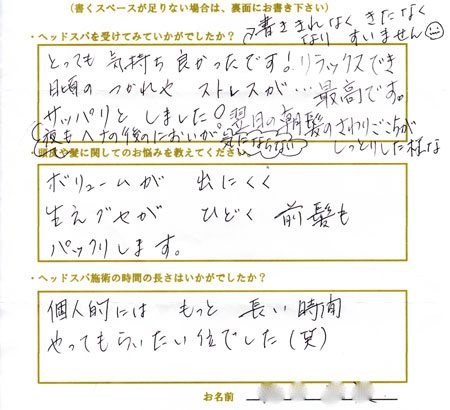 (書くスペースが足りない場合は、裏面にお書き下さい)
・ヘッドスパを受けてみていかがでしたか?
書ききれなく きたなく
なり すいません
とっても 気持ち良かったです! リラックスでき
日頃の つかれや ストレスが…最高です。
サッパリと しました! 翌日の朝髪のさわりごこちが
しっとりした様な
夜もヘナの後のにおいが気にならない
・頭皮や髪に関してのお悩みを教えてください
ボリュームが 出にくく
生えグセが ひどく 前髪も
パックリします。
・ヘッドスパ施術の時間の長さはいかがでしたか?
個人的には もっと 長い時間
やってもらいたい位でした(笑)
お名前